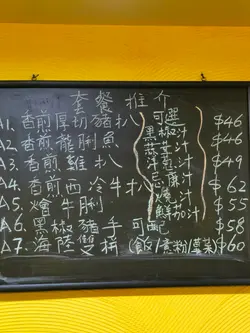 套餐推介
A1. 香煎厚切豬扒 $46
A2. 香煎龍脷魚 $46
A3. 香煎雞扒 $49
A4. 香煎西冷牛扒 $62
A5. 燴牛脷 $55
可選
黑椒汁
蒜茸汁
忌廉汁
燒汁
鮮茄汁
A6. 黑椒豬手可配 $58
A7. 海陸雙拼 (飯/意粉/薯菜) $60